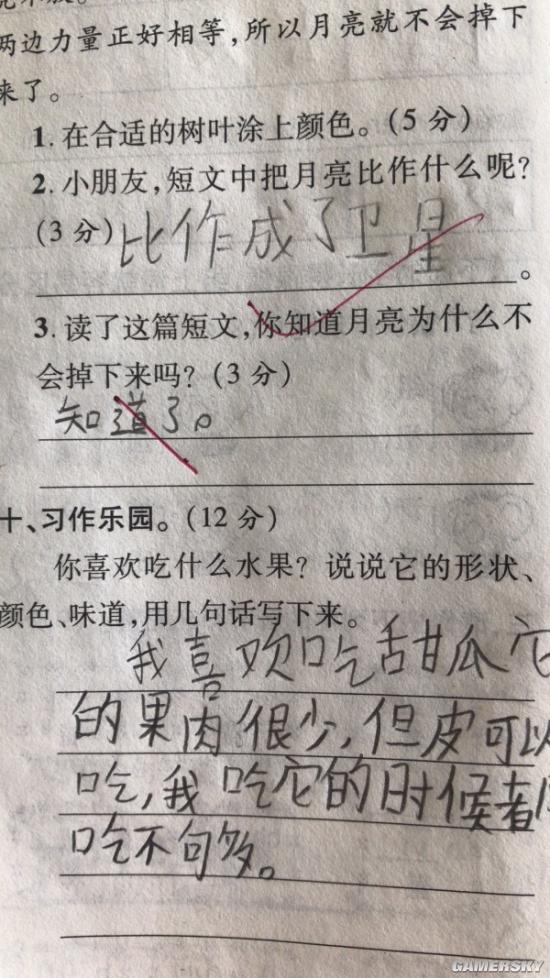 两边力量正好相等,所以月亮就不会掉下
来了。
1. 在合适的树叶涂上颜色。(5 分)
2. 小朋友,短文中把月亮比作什么呢?
(3 分) 比作成了卫星。
3. 读了这篇短文,你知道月亮为什么不
会掉下来吗? (3 分)
知道了。
十、习作乐园。(12 分)
你喜欢吃什么水果? 说说它的形状、
颜色、味道,用几句话写下来。
我喜欢吃甜瓜它
的果肉很少,但皮可以
吃,我吃它的时候都
吃不句多。
GAMERSKY